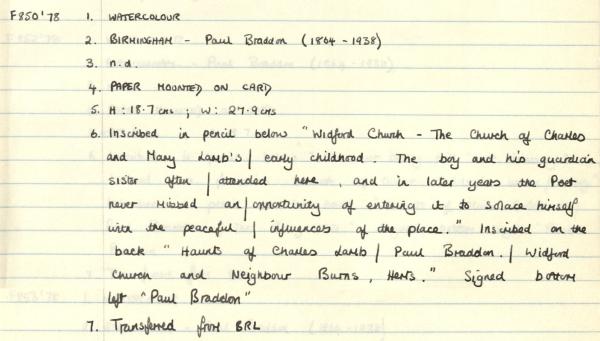 F850'78 1. WATERCOLOUR
2. BIRMINGHAM - Paul Braddon (1864-1938)
3. n.d.
4. PAPER MOUNTED ON CARD
5. H: 18.7 cms ; W: 27.9 cms
6. Inscribed in pencil below "Widford Church - The Church of Charles
and Mary Lamb's | early childhood. The boy and his guardian
sister often | attended here, and in later years the Poet
never missed an | opportunity of entering it to solace himself
with the peaceful | influences of the place." Inscribed on the
back "Haunts of Charles Lamb | Paul Braddon. | Widford
Church and Neighbour Burns, Herts." Signed bottom
left "Paul Braddon"
7. Transferred from BRL